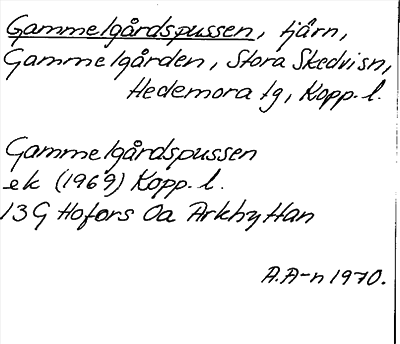 Gammelgårdspussen, tjärn,
Gammelgården, Stora Skedvisn,
Hedemora tg, Kopp. l.
Gammelgårdspussen
ek (1969) Kopp. l.
13G Hofors Oa Arkhyttan
A.A-n 1970.